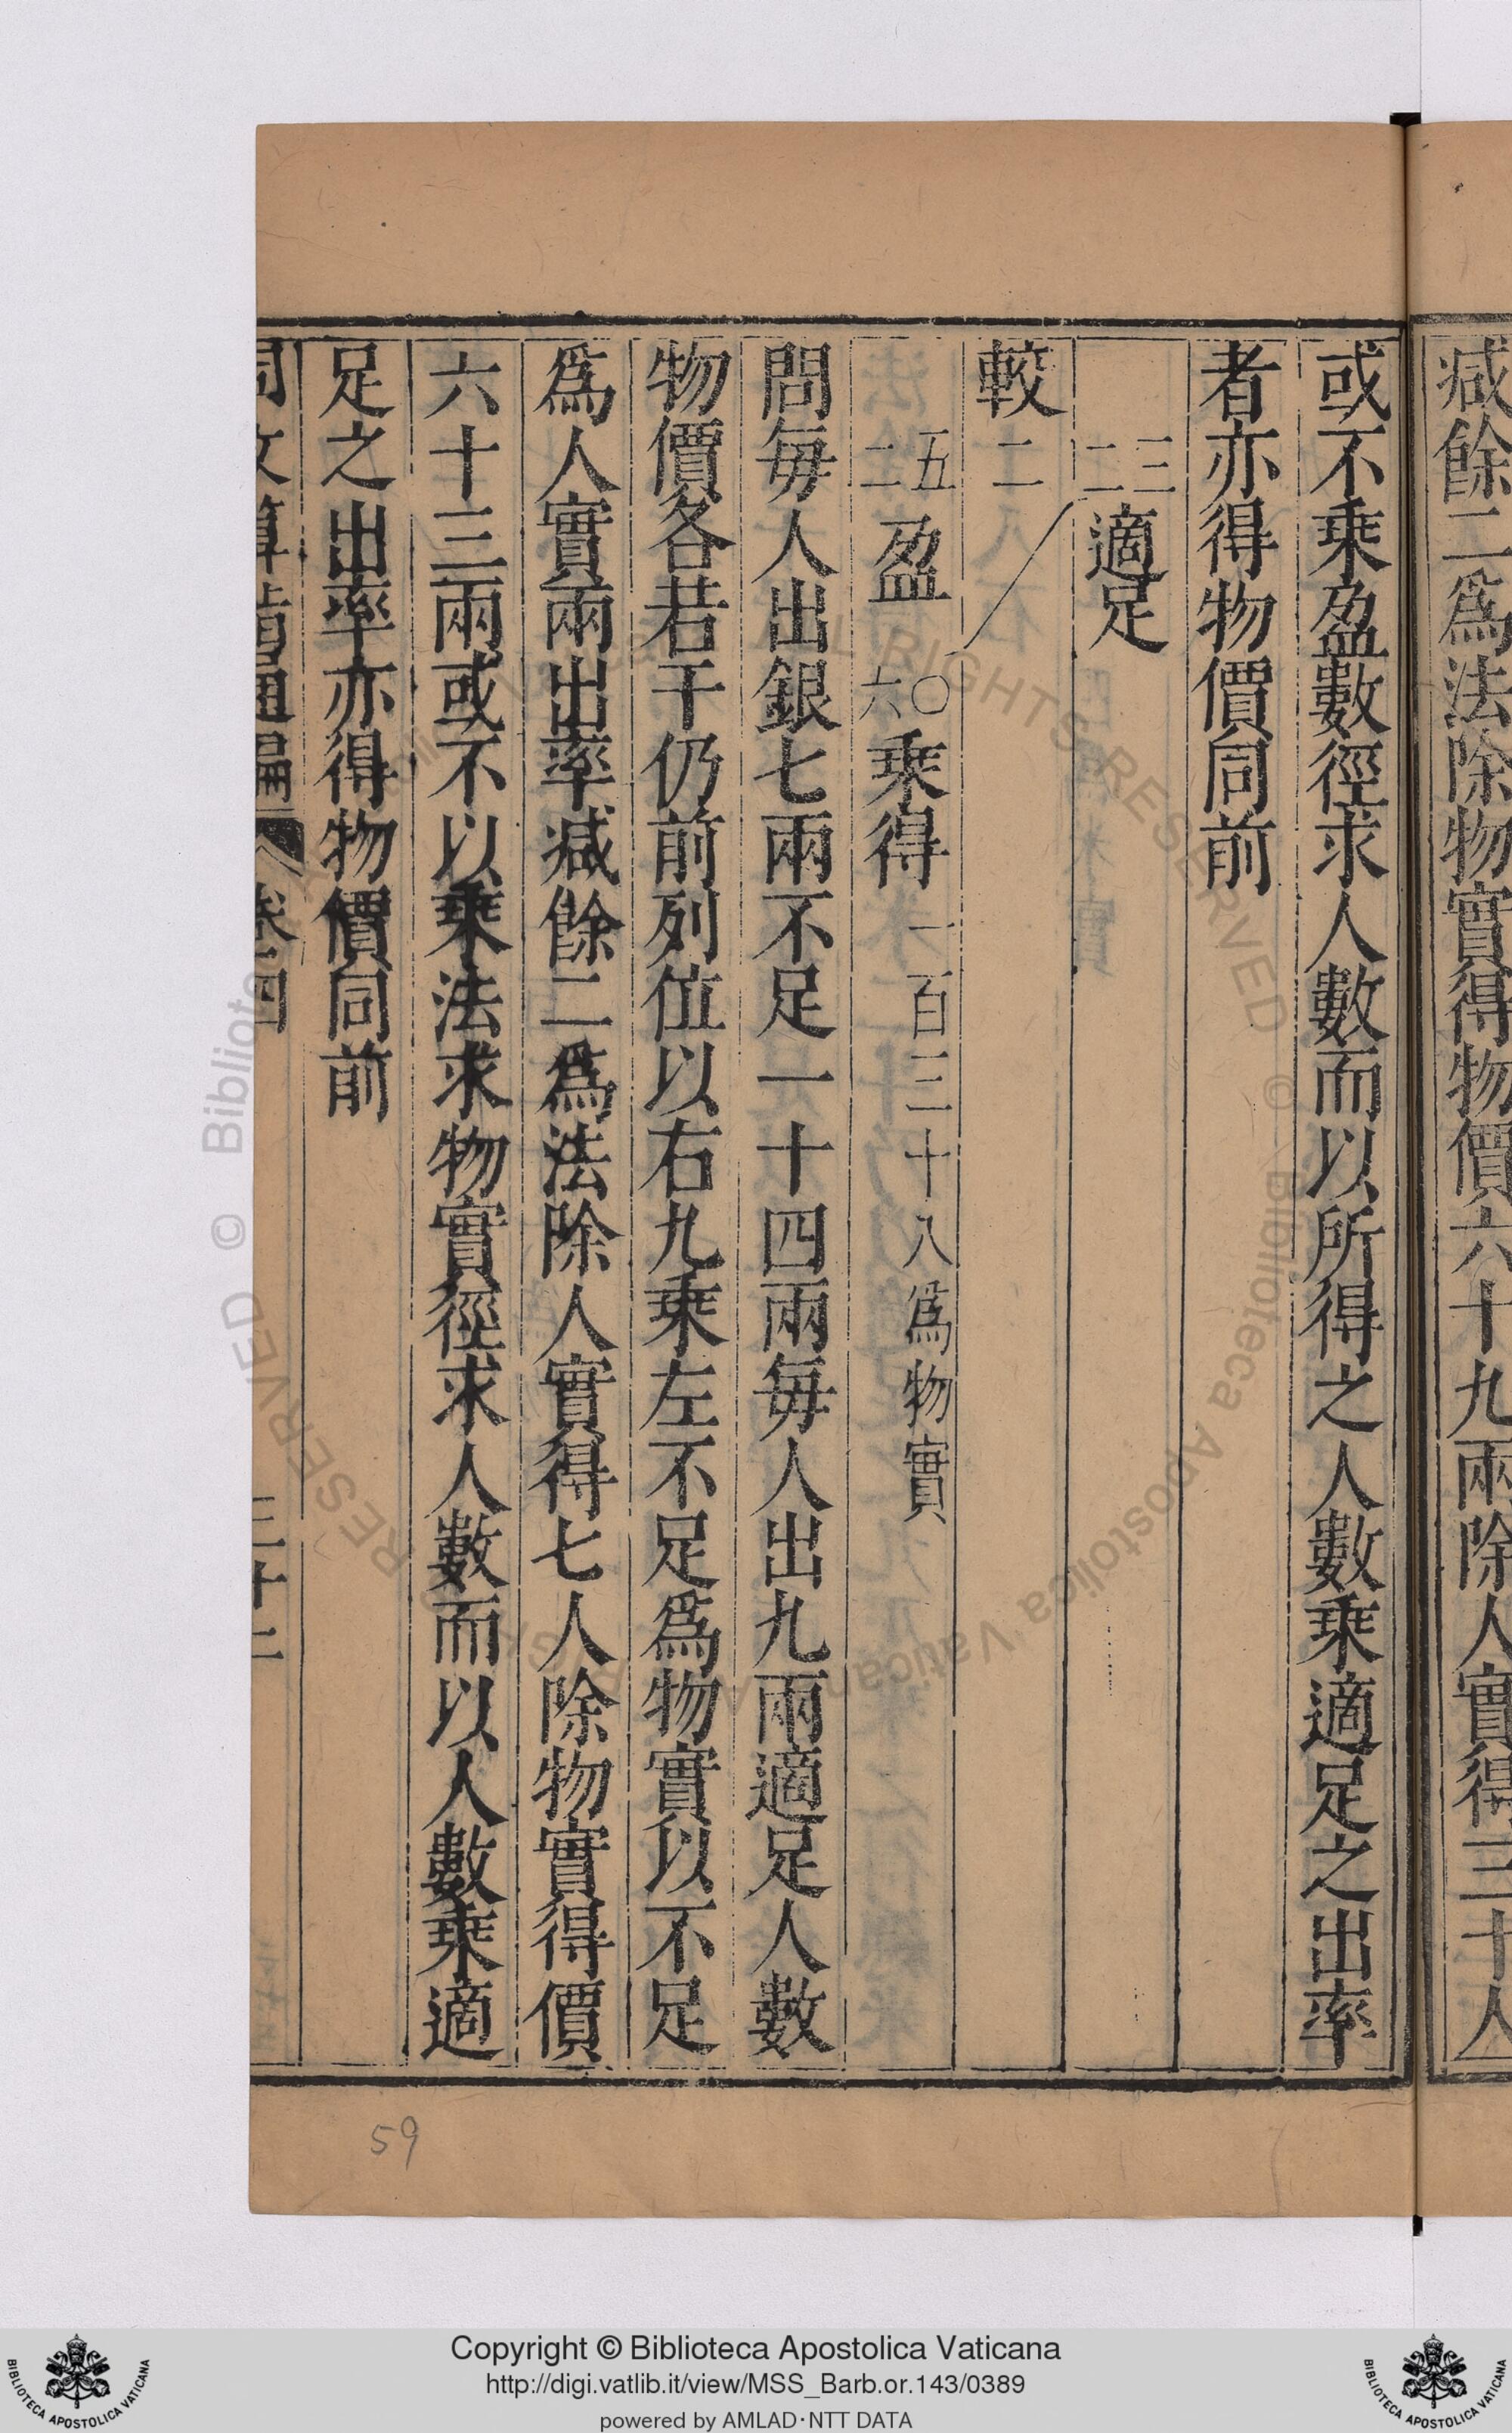 减餘二爲法除物實得物價六十九兩除人實得三十人
或不乘盈數徑求人數而以所得之人數乘適足之出率
者亦得物價同前
二三適足
較 二
二五 盈 六〇 乘得 一百三十八爲物實
問每人出銀七兩不足一十四兩每人出九兩適足人數
物價各若干仍前列位以右九乘左不足爲物實以不足
爲人實兩出率减餘二爲法除人實得七人除物實得價
六十三兩或不以乘法求物實徑求人數而以人數乘適
足之出率亦得物價同前
同文算指通編 卷四 三十二
59
Copyright © Biblioteca Apostolica Vaticana
http://digi.vatlib.it/view/MSS_Barb.or.143/0389
powered by AMLAD·NTT DATA